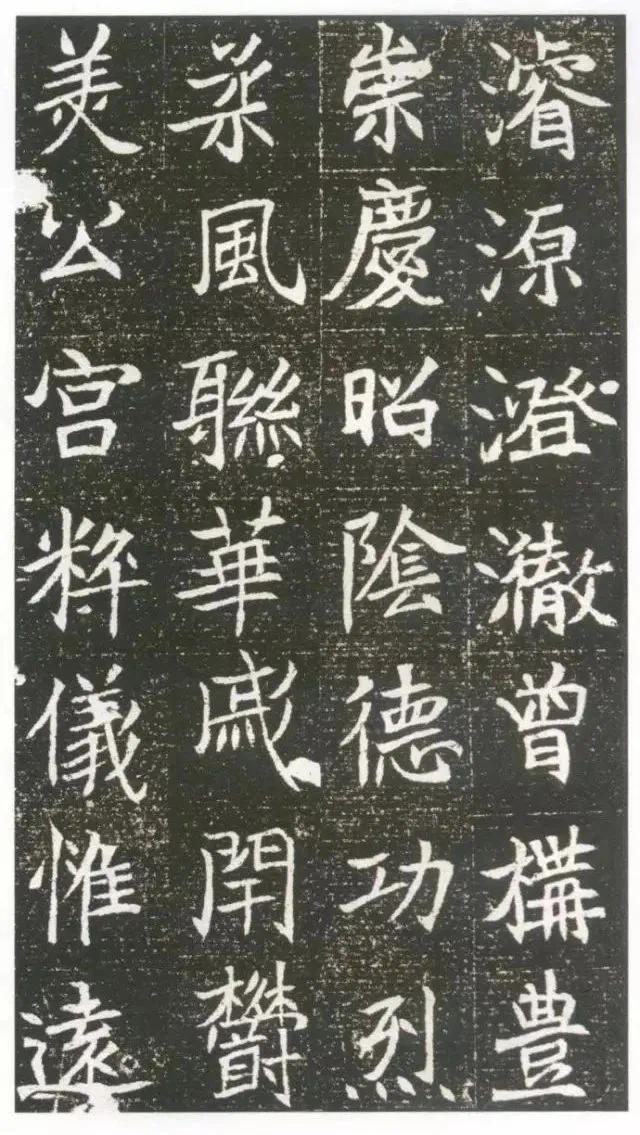 濬源澄澈曾構豊
崇慶昭陰德功烈
風聯華戚閈鬱
美公宮粹儀惟遠